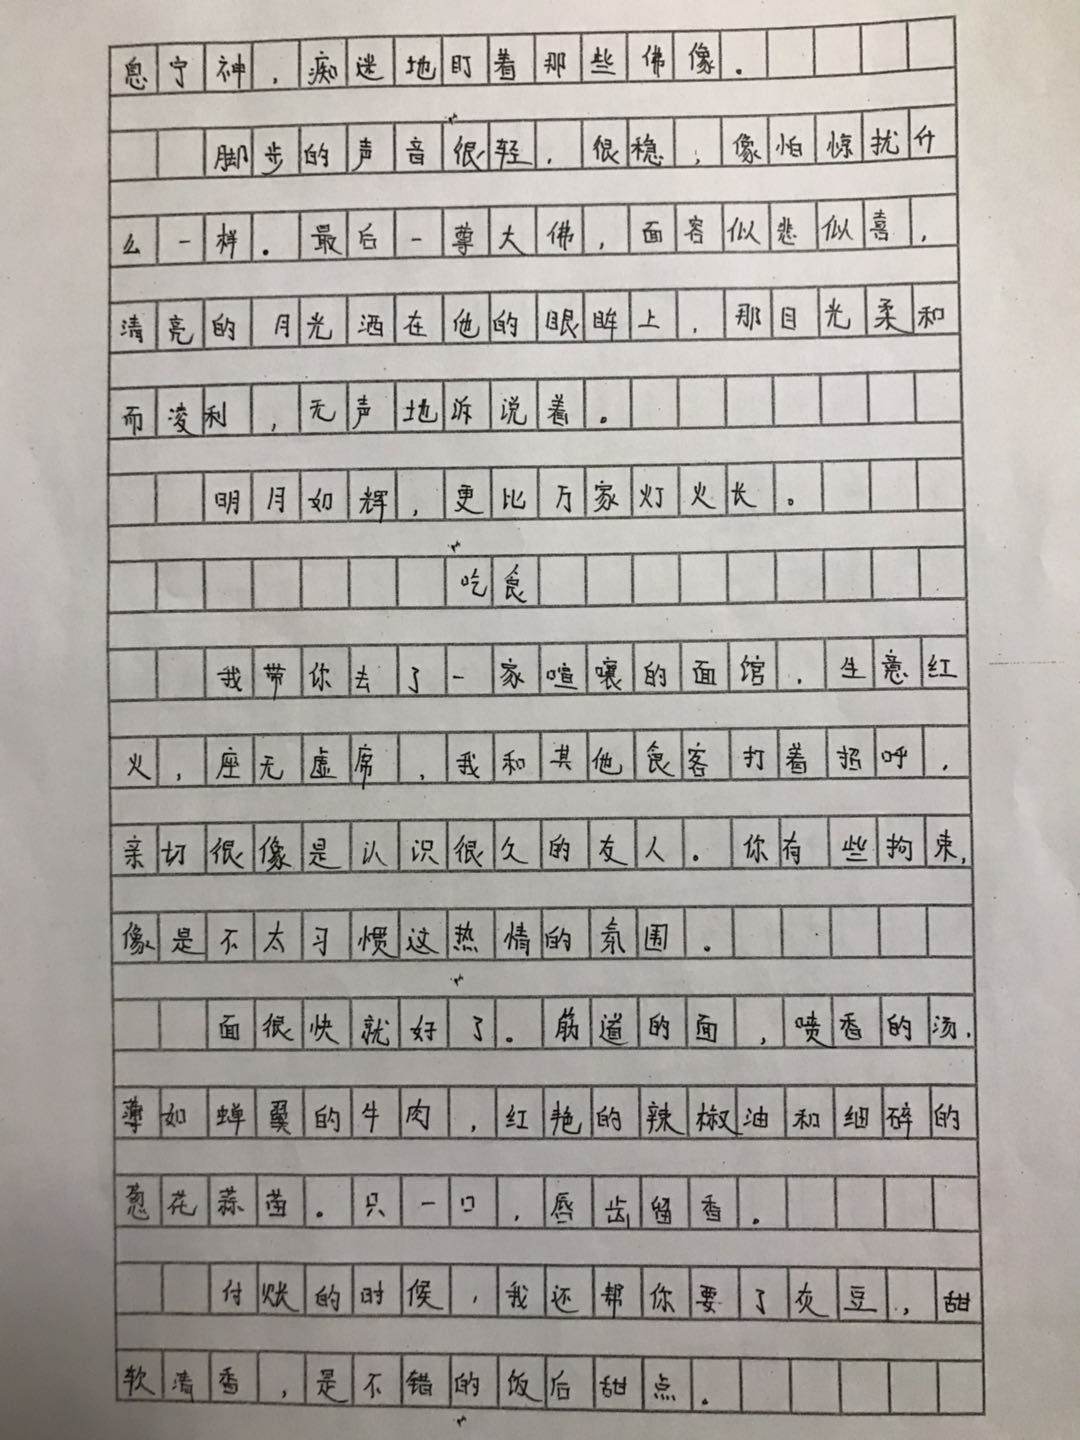 息宁神，痴迷地盯着那些佛像。
脚步的声音很轻，很稳，像怕惊扰什
么一样。最后一尊大佛，面容似悲似喜，
清亮的月光洒在他的眼眸上，那目光柔和
而凌利，无声地诉说着。
明月如辉，更比万家灯火长。
吃食
我带你去了一家喧嚷的面馆，生意红
火，座无虚席，我和其他食客打着招呼，
亲切很像是认识很久的友人。你有些拘束，
像是不太习惯这热情的氛围。
面很快就好了。筋道的面，喷香的汤，
薄如蝉翼的牛肉，红艳的辣椒油和细碎的
葱花蒜苗。只一口，唇齿留香。
付账的时候，我还帮你要了灰豆，甜
软清香，是不错的饭后甜点。